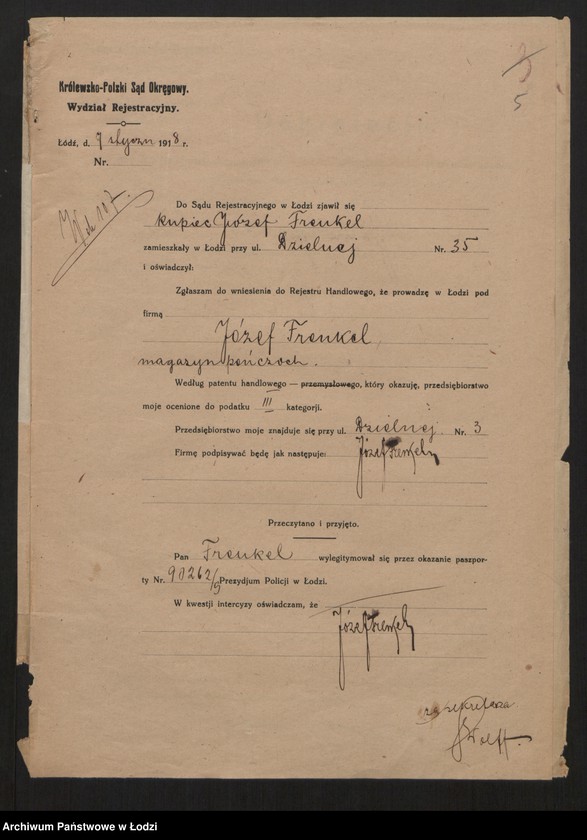 5
Królewsko-Polski Sąd Okręgowy.
Wydział Rejestracyjny.
Łódź, d. 7 styczn 1918 r.
Nr.
Do Sądu Rejestracyjnego w Łodzi zjawił się
kupiec Józef Frenkel
zamieszkały w Łodzi przy ul. Dzielnej Nr. 35
i oświadczył:
Zgłaszam do wniesienia do Rejestru Handlowego, że prowadzę w Łodzi pod
firmą
Józef Frenkel,
magazyn pończoch.
Według patentu handlowego — przemysłowego, który okazuję, przedsiębiorstwo
moje ocenione do podatku III kategorji.
Przedsiębiorstwo moje znajduje się przy ul. Dzielnej Nr. 3
Firmę podpisywać będę jak następuje: Józef Frenkel
Przeczytano i przyjęto.
Pan Frenkel wylegitymował się przez okazanie paszpor-
ty Nr. 90262/9 Prezydjum Policji w Łodzi.
W kwestji intercyzy oświadczam, że
Józef Frenkel
za sekretarza
Wolff.
Archiwum Państwowe w Łodzi